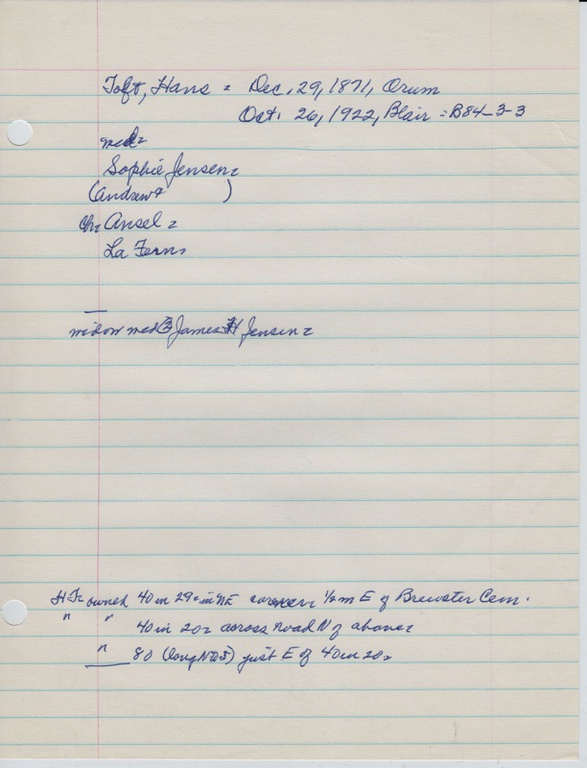 Toft, Hans = Dec. 29, 1871, Orum
Oct. 26, 1922, Blair = B84-3-3
med=
Sophie Jensen=
(Andrew+ )
ch= Ansel =
La Fern=
widow med James H Jensen=
HT= owned 40 in 29= in NE corner 1/2 m E of Brewster Cem.
" " 40 in 20= across road N of above=
" 80 (long N+S) just E of 40 in 20=